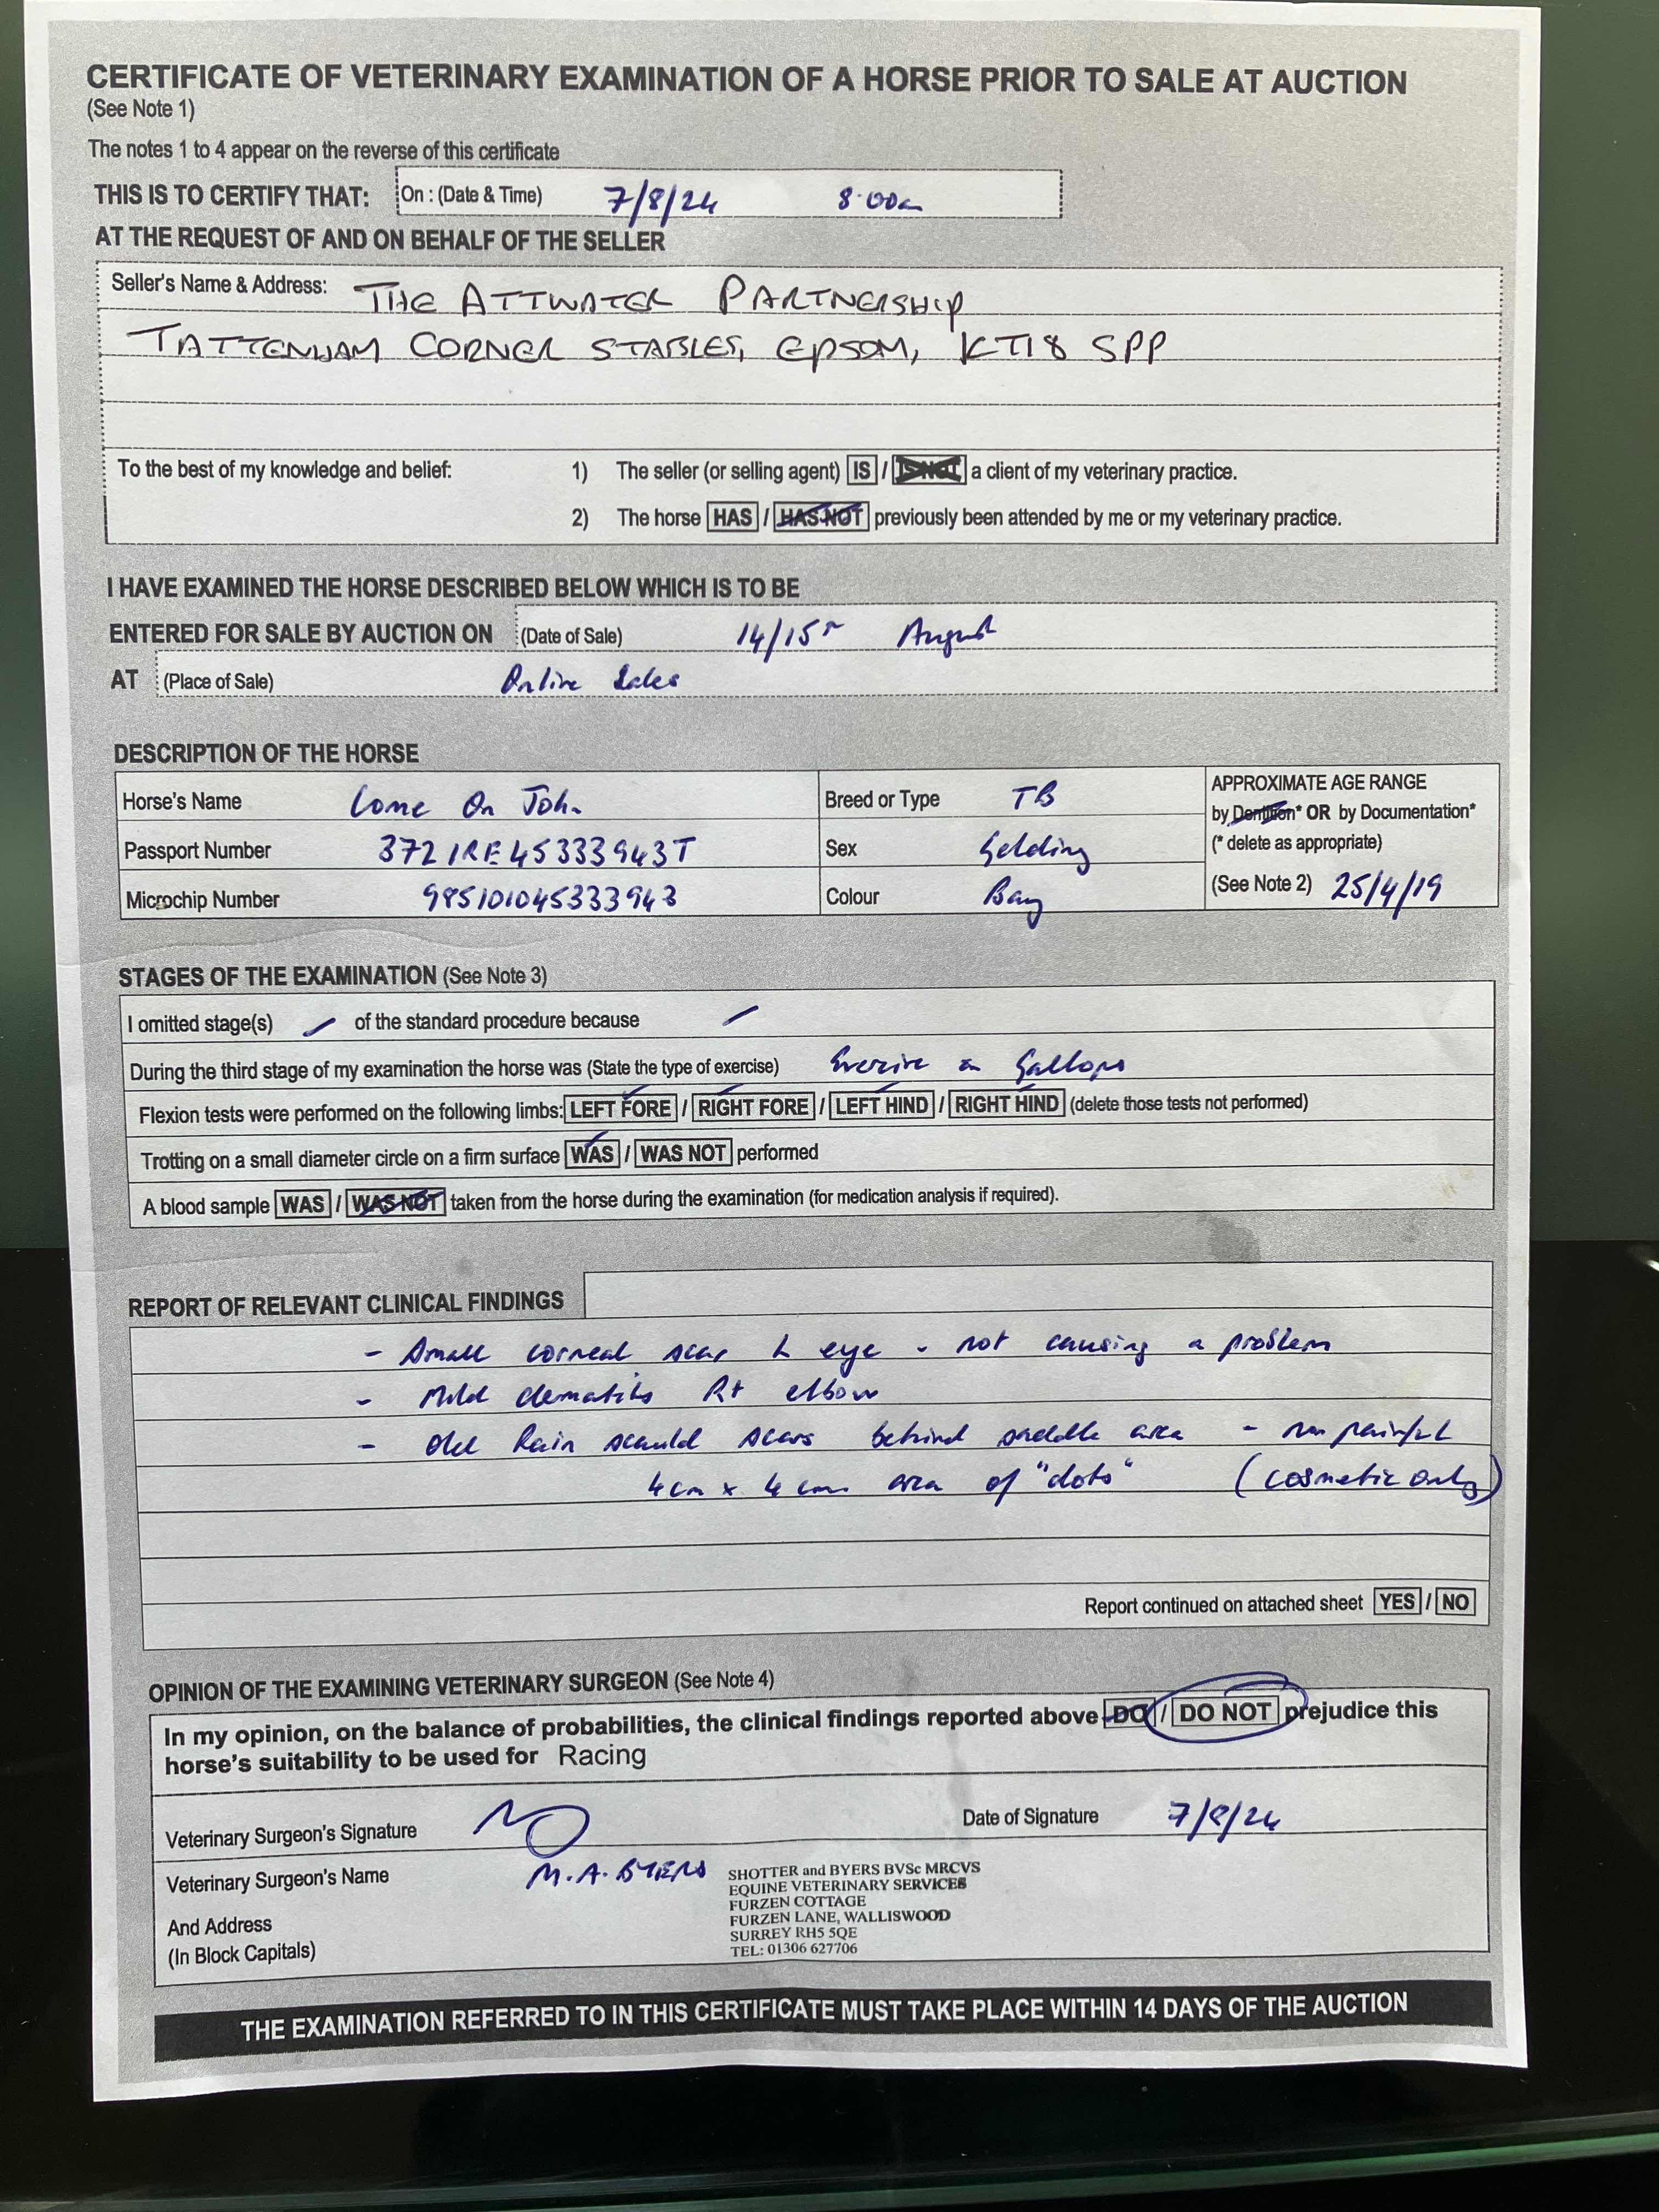 CERTIFICATE OF VETERINARY EXAMINATION OF A HORSE PRIOR TO SALE AT AUCTION
(See Note 1)
The notes 1 to 4 appear on the reverse of this certificate
THIS IS TO CERTIFY THAT: On : (Date & Time) 7/8/24 8.00am
AT THE REQUEST OF AND ON BEHALF OF THE SELLER
Seller's Name & Address: THE ATTWATER PARTNERSHIP
TATTENHAM CORNER STABLES, EPSOM, KT18 5PP
To the best of my knowledge and belief: 1) The seller (or selling agent) IS / IS NOT a client of my veterinary practice.
2) The horse HAS / HAS NOT previously been attended by me or my veterinary practice.
I HAVE EXAMINED THE HORSE DESCRIBED BELOW WHICH IS TO BE
ENTERED FOR SALE BY AUCTION ON (Date of Sale) 14/15th August
AT (Place of Sale) Online Sales
DESCRIPTION OF THE HORSE
Horse's Name Come On John Breed or Type TB APPROXIMATE AGE RANGE
by Dentition* OR by Documentation*
Passport Number 372IRE45333943T Sex Gelding (* delete as appropriate)
Microchip Number 985101045333943 Colour Bay (See Note 2) 25/4/19
STAGES OF THE EXAMINATION (See Note 3)
I omitted stage(s) of the standard procedure because
During the third stage of my examination the horse was (State the type of exercise) Exercise on Gallops
Flexion tests were performed on the following limbs: LEFT FORE / RIGHT FORE / LEFT HIND / RIGHT HIND (delete those tests not performed)
Trotting on a small diameter circle on a firm surface WAS / WAS NOT performed
A blood sample WAS / WAS NOT taken from the horse during the examination (for medication analysis if required).
REPORT OF RELEVANT CLINICAL FINDINGS
- Small corneal scar L eye - not causing a problem
- Mild dermatitis Rt elbow
- Old Rain scauld scars behind saddle area - non painful
4cm x 4cm area of "dots" (cosmetic only)
Report continued on attached sheet YES / NO
OPINION OF THE EXAMINING VETERINARY SURGEON (See Note 4)
In my opinion, on the balance of probabilities, the clinical findings reported above DO / DO NOT prejudice this
horse's suitability to be used for Racing
Veterinary Surgeon's Signature Date of Signature 7/8/24
Veterinary Surgeon's Name M.A. BYERS
And Address
(In Block Capitals)
SHOTTER and BYERS BVSc MRCVS
EQUINE VETERINARY SERVICES
FURZEN COTTAGE
FURZEN LANE, WALLISWOOD
SURREY RH5 5QE
TEL: 01306 627706
THE EXAMINATION REFERRED TO IN THIS CERTIFICATE MUST TAKE PLACE WITHIN 14 DAYS OF THE AUCTION